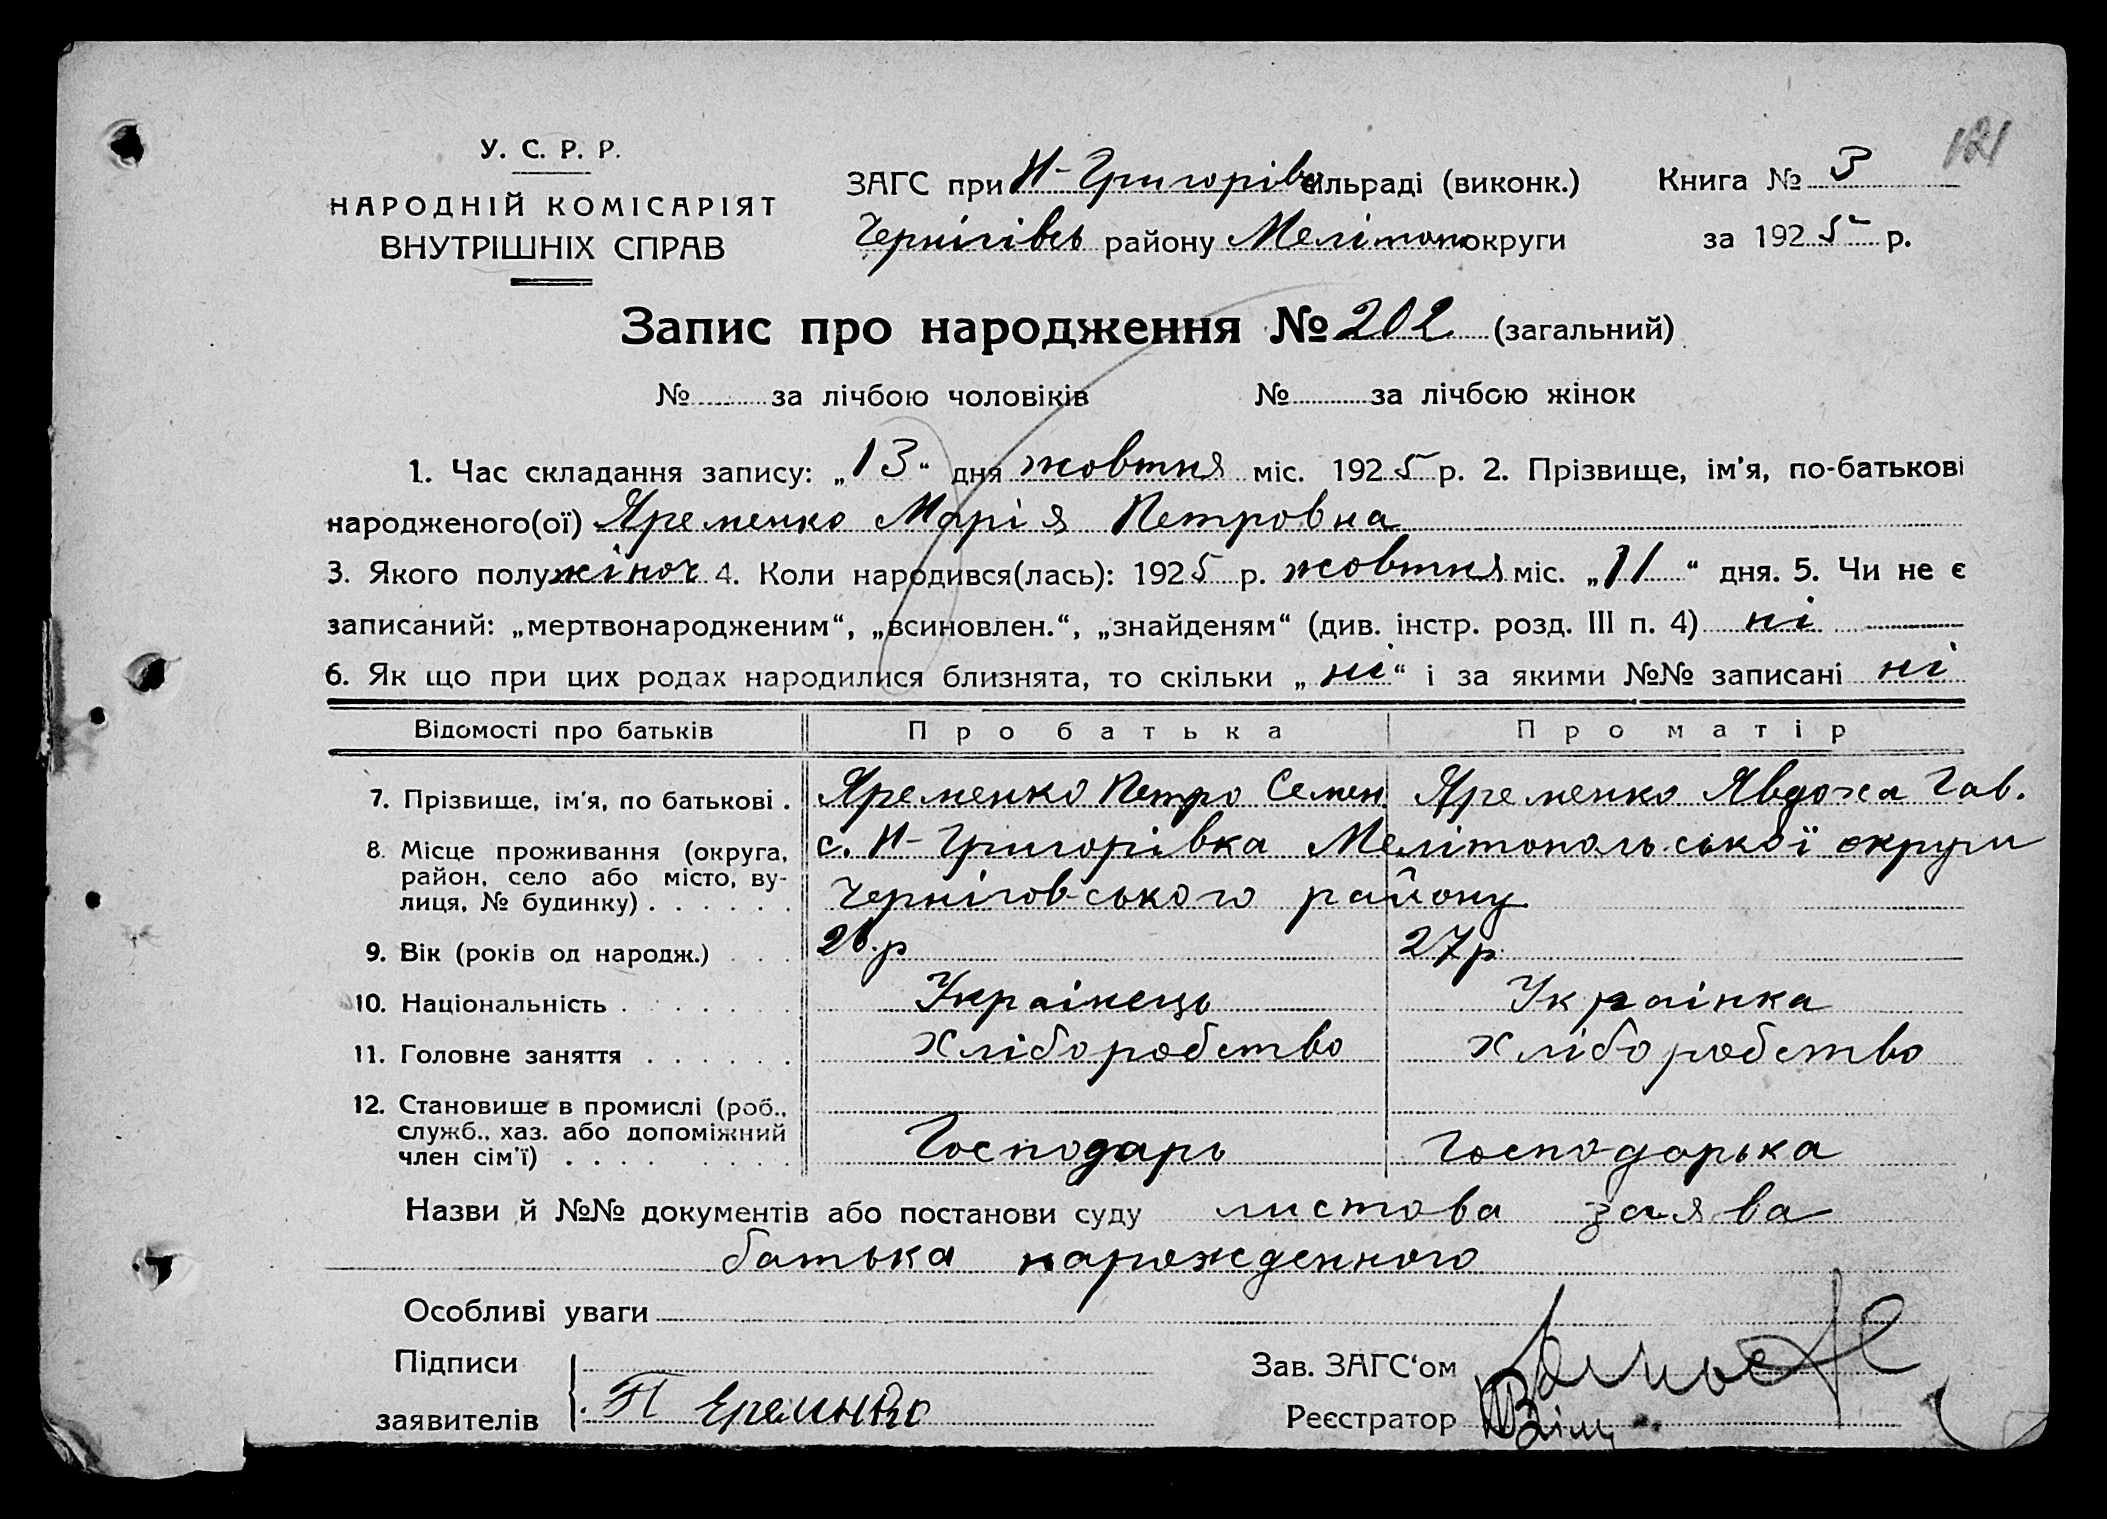 121
У. С. Р. Р.
НАРОДНІЙ КОМІСАРІЯТ
ВНУТРІШНІХ СПРАВ
ЗАГС при Н-Григорівс сільраді (виконк.) Книга № 3
Чернігівсь району Мелітоп округи за 1925 р.
Запис про народження № 202 (загальний)
№ за лічбою чоловіків № за лічбою жінок
1. Час складання запису: „13“ дня жовтня міс. 1925 р. 2. Прізвище, ім'я, по-батькові
народженого(ої) Яременко Марія Петровна
3. Якого полу жіноч 4. Коли народився(лась): 1925 р. жовтня міс. „11“ дня. 5. Чи не є
записаний: „мертвонародженим“, „всиновлен.“, „знайденям“ (див. інстр. розд. III п. 4) ні
6. Як що при цих родах народилися близнята, то скільки „ні“ і за якими №№ записані ні
Відомості про батьків Про батька Про матір
7. Прізвище, ім'я, по батькові . Яременко Петро Семен. Яременко Явдоха Гав.
8. Місце проживання (округа, с. Н-Григорівка Мелітопольської округи
район, село або місто, ву-
лиця, № будинку) . . . . . . Чернігов-ського району
9. Вік (років од народж.) . . . 26.р 27р.
10. Національність . . . . . . . Українець Українка
11. Головне заняття . . . . . . Хліборобство Хліборобство
12. Становище в промислі (роб.,
служб., хаз. або допоміжний
член сім'ї) . . . . . . . . . Господарь Господарька
Назви й №№ документів або постанови суду листова заява
батька нарожденного
Особливі уваги
Підписи Зав. ЗАГС'ом
заявителів П Еременко Реєстратор